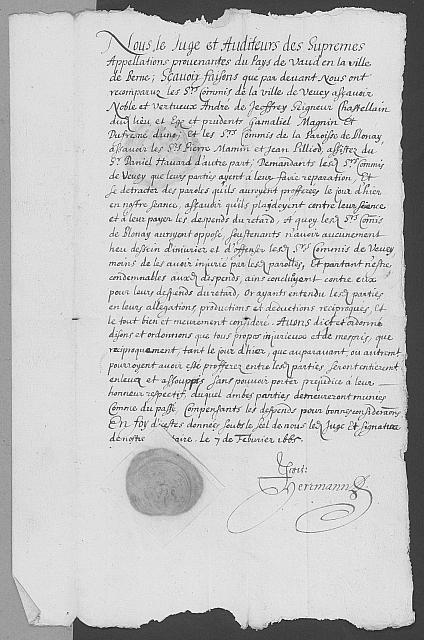 Nous le Juge et Auditeurs des Supremes
Appellations provenantes du Pays de Vaud en la ville
de Berne; Sçavoir faisons que par devant Nous ont
recomparuz les Srs Commis de la ville de Vevey asçavoir
Noble et Vertueux André de Jeoffrey Seigneur Chastellain
du lieu et Egr et prudents Gamaliel Magnin et
d'une; et les Srs Commis de la Paroisse de Blonay,
asçavoir les Srs Pierre Mamin et Jean Pilliod, assistez du
Sr Daniel Havard d'autre part; Demandants lesd Srs Commis
de Vevey que leurs parties ayent à leur faire reparation, Et
se detracter des paroles qu'ils auroyent profferees le jour d'hier
en nostre seance, assavoir qu'ils playdoyent contre leur
et à leur payer les despends du retard, A quoy lesd Srs Comis
de Blonay auroyent opposé, soustenants n'avoir aucunement
heu dessein d'injurier et d'offenser lesd Srs Commis de Vevey
moins de les avoir injurié par lesd parolles, Et partant n'estre
condemnables auxd despends, ains concluÿent contre eux
pour leurs despends du retard, Or ayants entendu lesd parties
en leurs allegations productions et deductions reciproques, Et
le tout bien et meurement consideré. Avons dict et ordonné
disons et ordonnons que tous propos injurieux et de mespris, que
reciproquement, tant le jour d'hier, que auparavant, ou autrent
pourroyent avoir esté profferez entre lesd parties, seront entieremt
enlevez et assouppis sans pouvoir porter prejudice à leur
honneur respectif, duquel ambes parties demeureront munies
comme du passé, Compensants les despends pour bonnes consideraõns
En foy d'icestes données soubs le seel de nous led Juge Et signature
de nostre taire. le 7 de Febvrier 1665
Herrmann